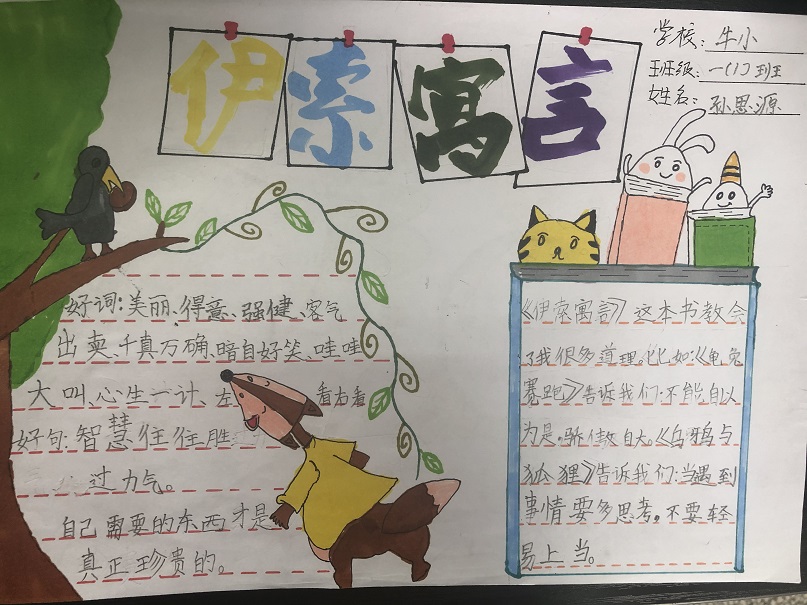 伊索寓言
学校：牛小
班级：一(1)班
姓名：孙思源
好词：美丽、得意、强健、客气
出卖、千真万确、暗自好笑、哇哇
大叫、心生一计、左看右看
好句：智慧往往胜
过力气。
自己需要的东西才是
真正珍贵的。
《伊索寓言》这本书教会
了我很多道理。比如：《龟兔
赛跑》告诉我们：不能自以
为是，骄傲自大。《乌鸦与
狐狸》告诉我们：当遇到
事情要多思考，不要轻
易上当。